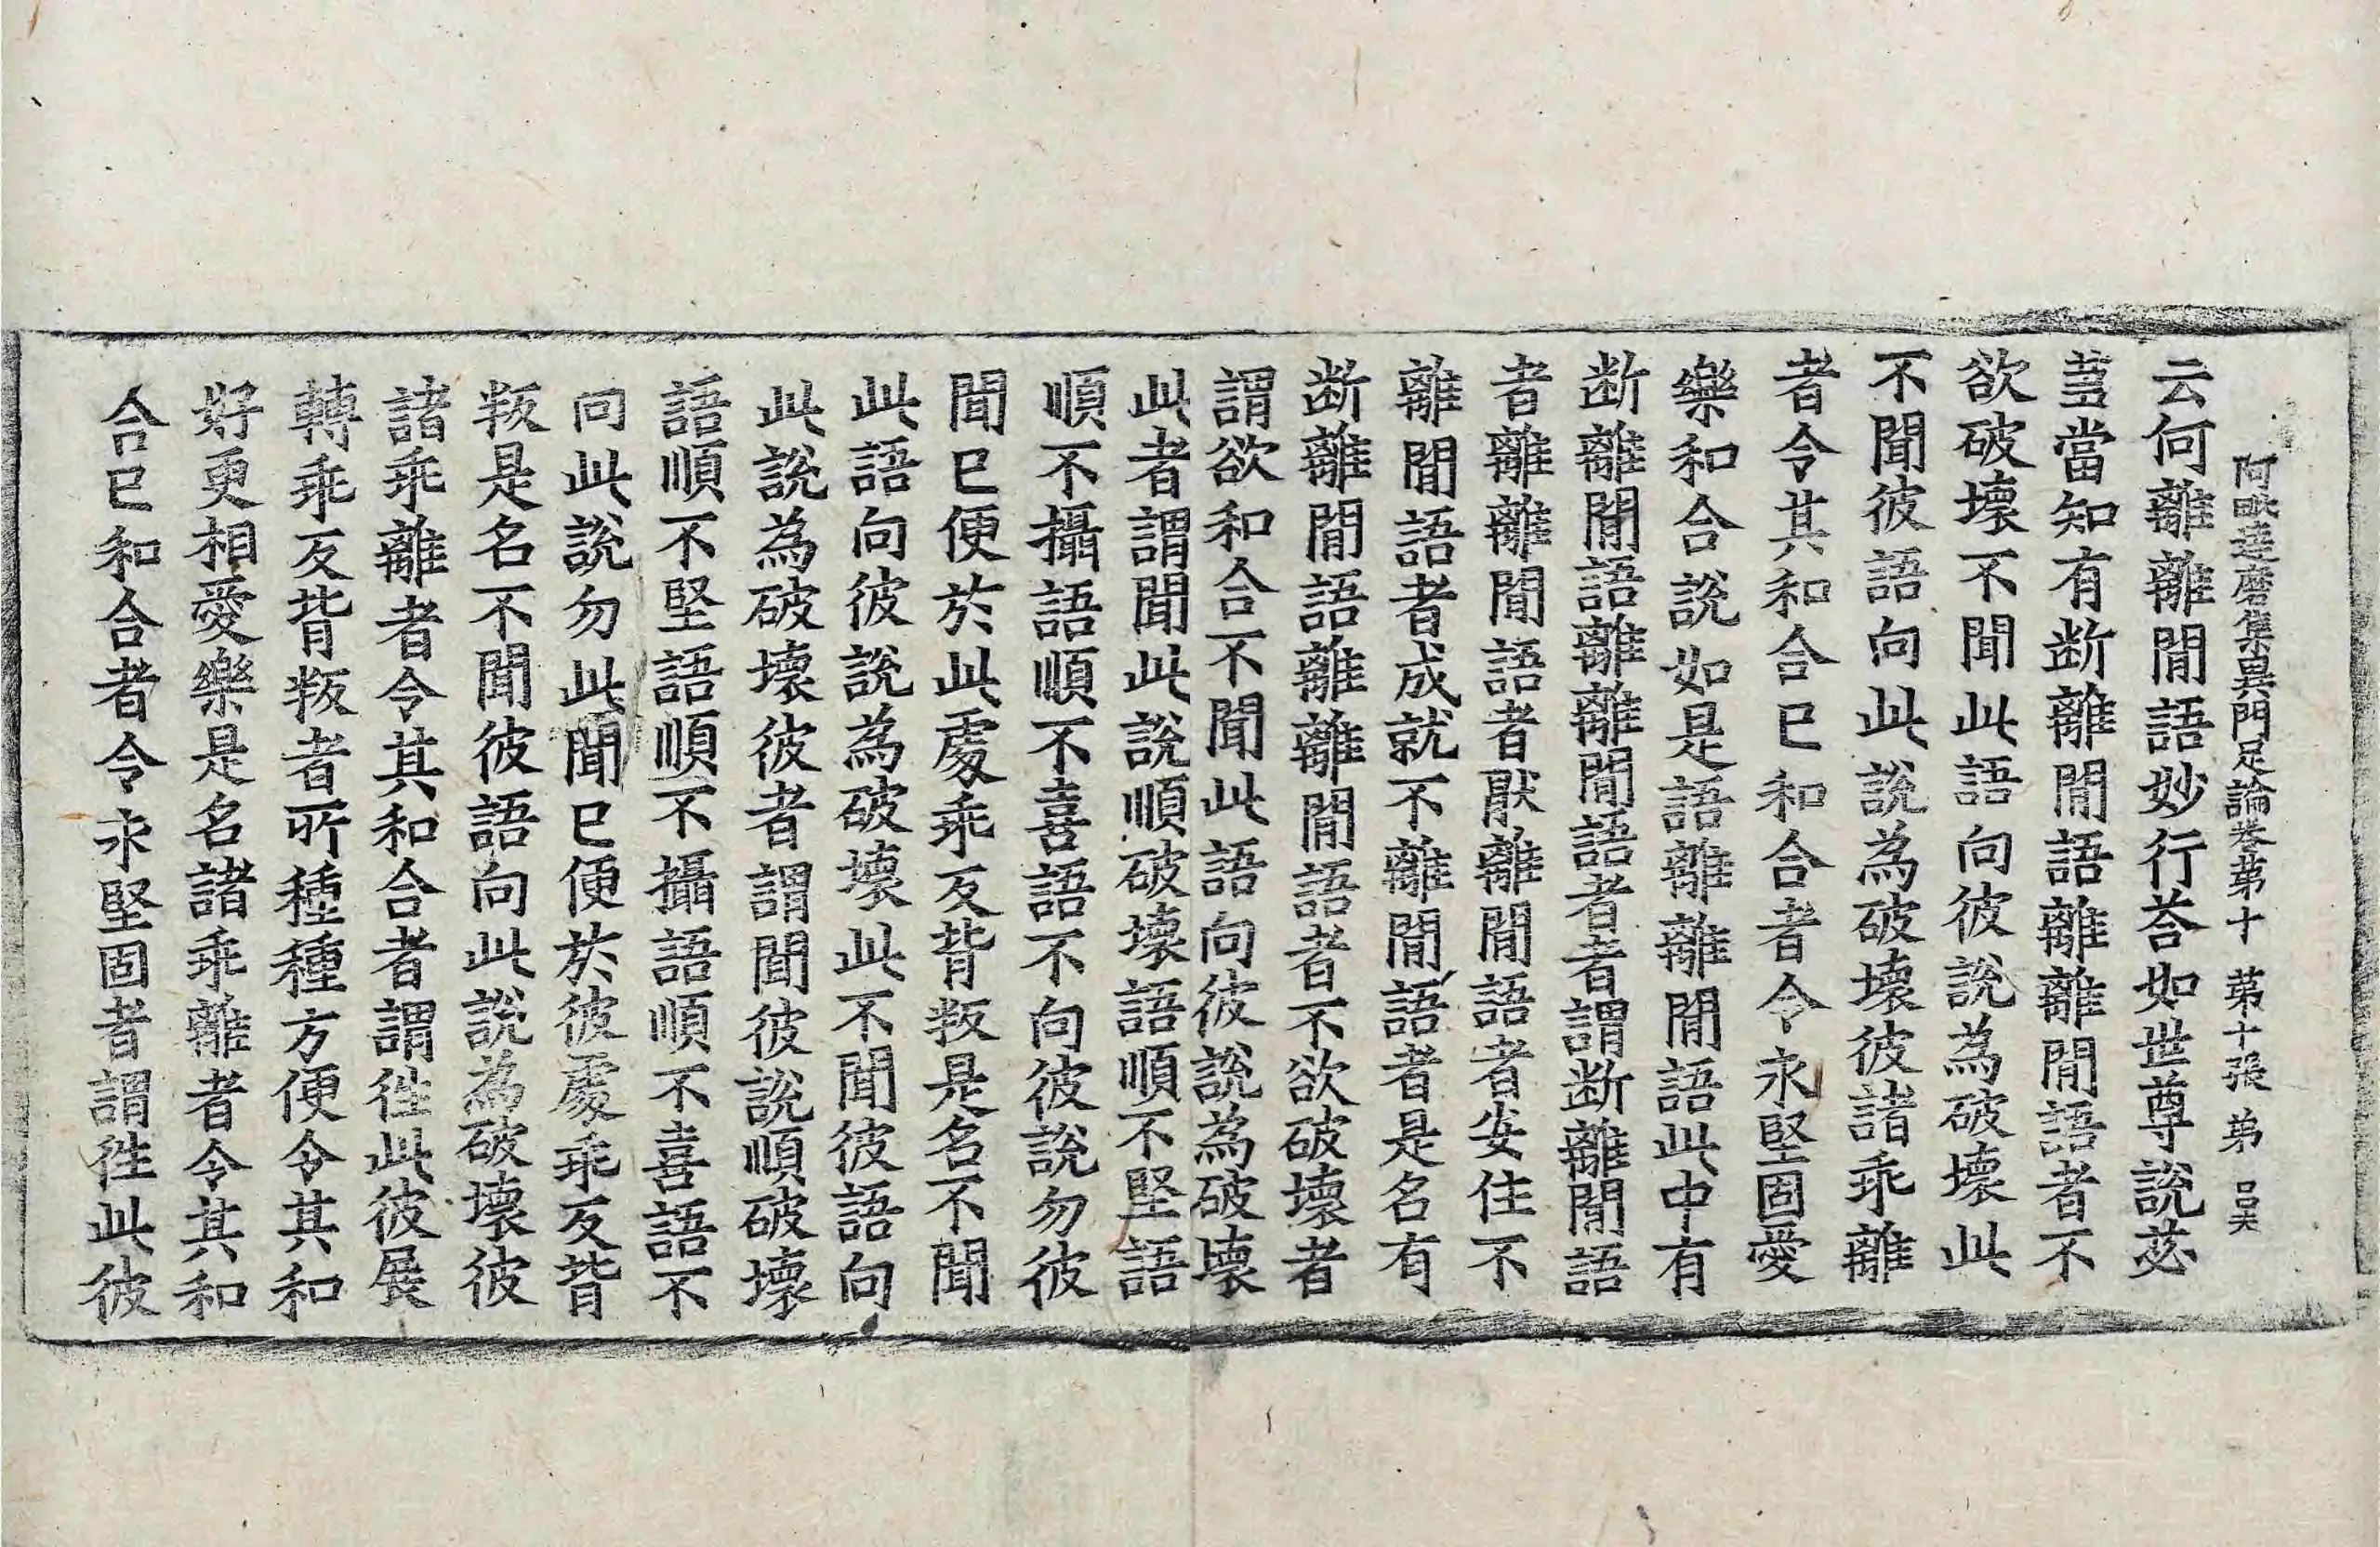 阿毗達磨集異門足論卷第十 第十張 弟
云何離離閒語妙行荅如世尊說苾
蒭當知有断離閒語離離閒語者不
欲破壞不聞此語向彼說為破壞此
不聞彼語向此說為破壞彼諸乖離
者令其和合已和合者令永堅固愛
樂和合說如是語離離閒語此中有
断離閒語離離閒語者者謂断離閒語
者離離閒語者猒離閒語者安住不
離閒語者成就不離閒語者是名有
断離閒語離離閒語者不欲破壞者
謂欲和合不聞此語向彼說為破壞
此者謂聞此說順破壞語順不堅語
順不攝語順不喜語不向彼說勿彼
聞已便於此處乖反背叛是名不聞
此語向彼說為破壞此不聞彼語向
此說為破壞彼者謂聞彼說順破壞
語順不堅語順不攝語順不喜語不
向此說勿此聞已便於彼處乖反背
叛是名不聞彼語向此說為破壞彼
諸乖離者令其和合者謂往此彼展
轉乖反背叛者所種種方便令其和
好更相愛樂是名諸乖離者令其和
合已和合者令永堅固者謂往此彼